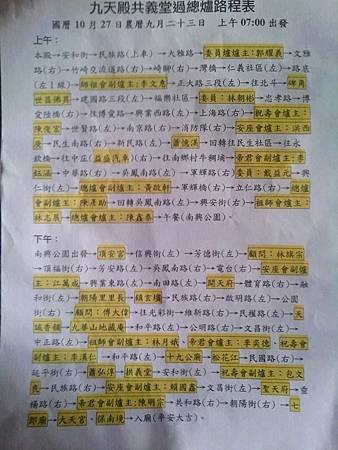 九天殿共義堂過總爐路程表
國曆10月27日農曆九月二十三日 上午07:00出發
上午:
本殿→安和街→民族路(上車)→大雅路→委員爐爐主:郭耀義→文雅
路(右)→竹崎交流道路(右)→崎腳(右)→灣橋→仁義社區(左)→路底
(左1線)→師祖會副爐主:李文惠→正大路(右)→大雅路(左)→碑角
世昌佛具→建國路三段(左)→福樂社區→委員:林朝彬→忠孝路→博
愛陸橋(右)→往博愛路→興業西路(左)→上海路(右)→祝壽會爐主:
陳俊宏→世賢路(左)→南京路(右)→消防隊(右)→安座會爐主:洪西
庚→民生南路(右)→新民路(右)→蕭俊淇→回轉往民生社區→往永
欽橋→往中庄(益盛汽車)(右)→往南鄉村牛稠埔→帝君會副爐主:李
鈺涵→中華路(右)→吳鳳南路(左)→軍輝路(右)→委員:戴益元→興
仁街(左)→總爐會副爐主:黃啟軒→軍輝橋(右)→立仁路(右)→總爐
會副爐主:陳彥助→回轉吳鳳南路(左)→興安街(右)→祖師會爐主:
林志展→總爐會爐主:陳鑫泰→午餐(南興公園)。
下午:
南興公園出發→項安宮→信興街(左)→芳德街(左)→顧問:林旗宗
→頂福街(右)→芳安路(左)→吳鳳南路(左)→電台(右)→安座會副爐
主:江萬成→興業東路(右)→南田路(左)→開天府→體育路(右)→融
和街(左)→朝陽里里長→鎮玄壇→民族路(右)→啟明路(左)→公園
街(右)→顧問:傅大信→往光彩街→維新路(右)→民權路(左)→天
誠香鋪→九華山地藏庵→和平路(左)→公明路(右)→文昌街(左)→
中正路(左)→祖師會副爐主:林月娥、帝君會爐主:李奕德、祝壽會
副爐主:李漢仁→和平路(左)→十九公廟→松花江→民國路(右)→
延平街(右)→蕭弘淳→棋義堂→安和街(左)→祝壽會副爐主:包文
義→民族路(右)→安座會副爐主:賴國鑫→文昌街(左)→聖天府→垂
楊路(右)→帝君會副爐主:陳明宗→共和路(右)→朝陽街(右)→七
郎廟→大天宮、保南境→入廟(平安大吉)。